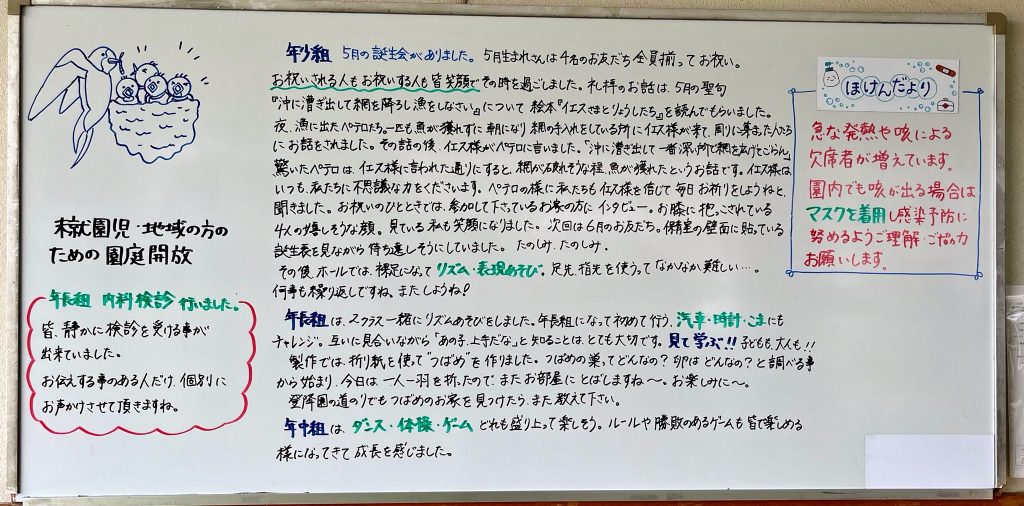 未就園児・地域の方の
ための園庭開放
年長組 内科検診 行いました。
皆、静かに検診を受ける事が
出来ていました。
お伝えする事のある人だけ、個別に
お声かけさせて頂きますね。
年少組 5月の誕生会がありました。 5月生まれさんは4名のお友だち全員揃ってお祝い。
お祝いされる人もお祝いする人も皆笑顔でその時を過ごしました。礼拝のお話は、5月の聖句
『沖に漕ぎ出して網を降ろし漁をしなさい。』について 絵本『イエスさまとりょうしたち』を読んでもらいました。
夜、漁に出たペテロたち。一匹も魚が獲れずに朝になり 網の手入れをしている所にイエス様が来て、周りに集まった人たち
にお話をされました。その話の後、イエス様がペテロに言いました。「沖に漕ぎ出して一番深い所で網を広げてごらん」
驚いたペテロは、イエス様に言われた通りにすると、網が破れそうな程、魚が獲れたというお話です。イエス様は
いつも、私たちに不思議な力をくださいます。ペテロの様に私たちもイエス様を信じて毎日お祈りをしようねと、
聞きました。お祝いのひとときでは、参加して下さっているお家の方にインタビュー。お膝に抱っこされている
4人の嬉しそうな顔。見ている私も笑顔になりました。次回は6月のお友だち。保育室の壁面に貼っている
誕生表を見ながら待ち遠しそうにしていました。たのしみ、たのしみ。
その後、ホールでは、裸足になって リズム・表現あそび。足先、指先を使うって「なかなか難しい…。
何事も繰り返しですね、またしようね!
年長組は、2クラス一緒にリズムあそびをしました。年長組になって初めて行う、汽車・時計・こまにも
チャレンジ。互いに見合いながら「あの子、上手だな」と知ることは、とても大切です。見て学ぶ!! 子どもも、大人も!!
製作では、折り紙を使って"つばめ"を作りました。つばめの巣ってどんなの? 卵はどんなの? と調べる事
から始まり、今日は一人一羽を折ったので、またお部屋にとばしますね〜。お楽しみに〜。
登降園の道のりでもつばめのお家を見つけたら、また教えて下さい。
年中組は、ダンス・体操・ゲーム どれも盛り上って楽しそう。ルールや勝敗のあるゲームも皆で楽しめる
様になってきて成長を感じました。
ほけんだより
急な発熱や咳による
欠席者が増えています。
園内でも咳が出る場合は
マスクを着用し感染予防に
努めるようご理解・ご協力
お願いします。